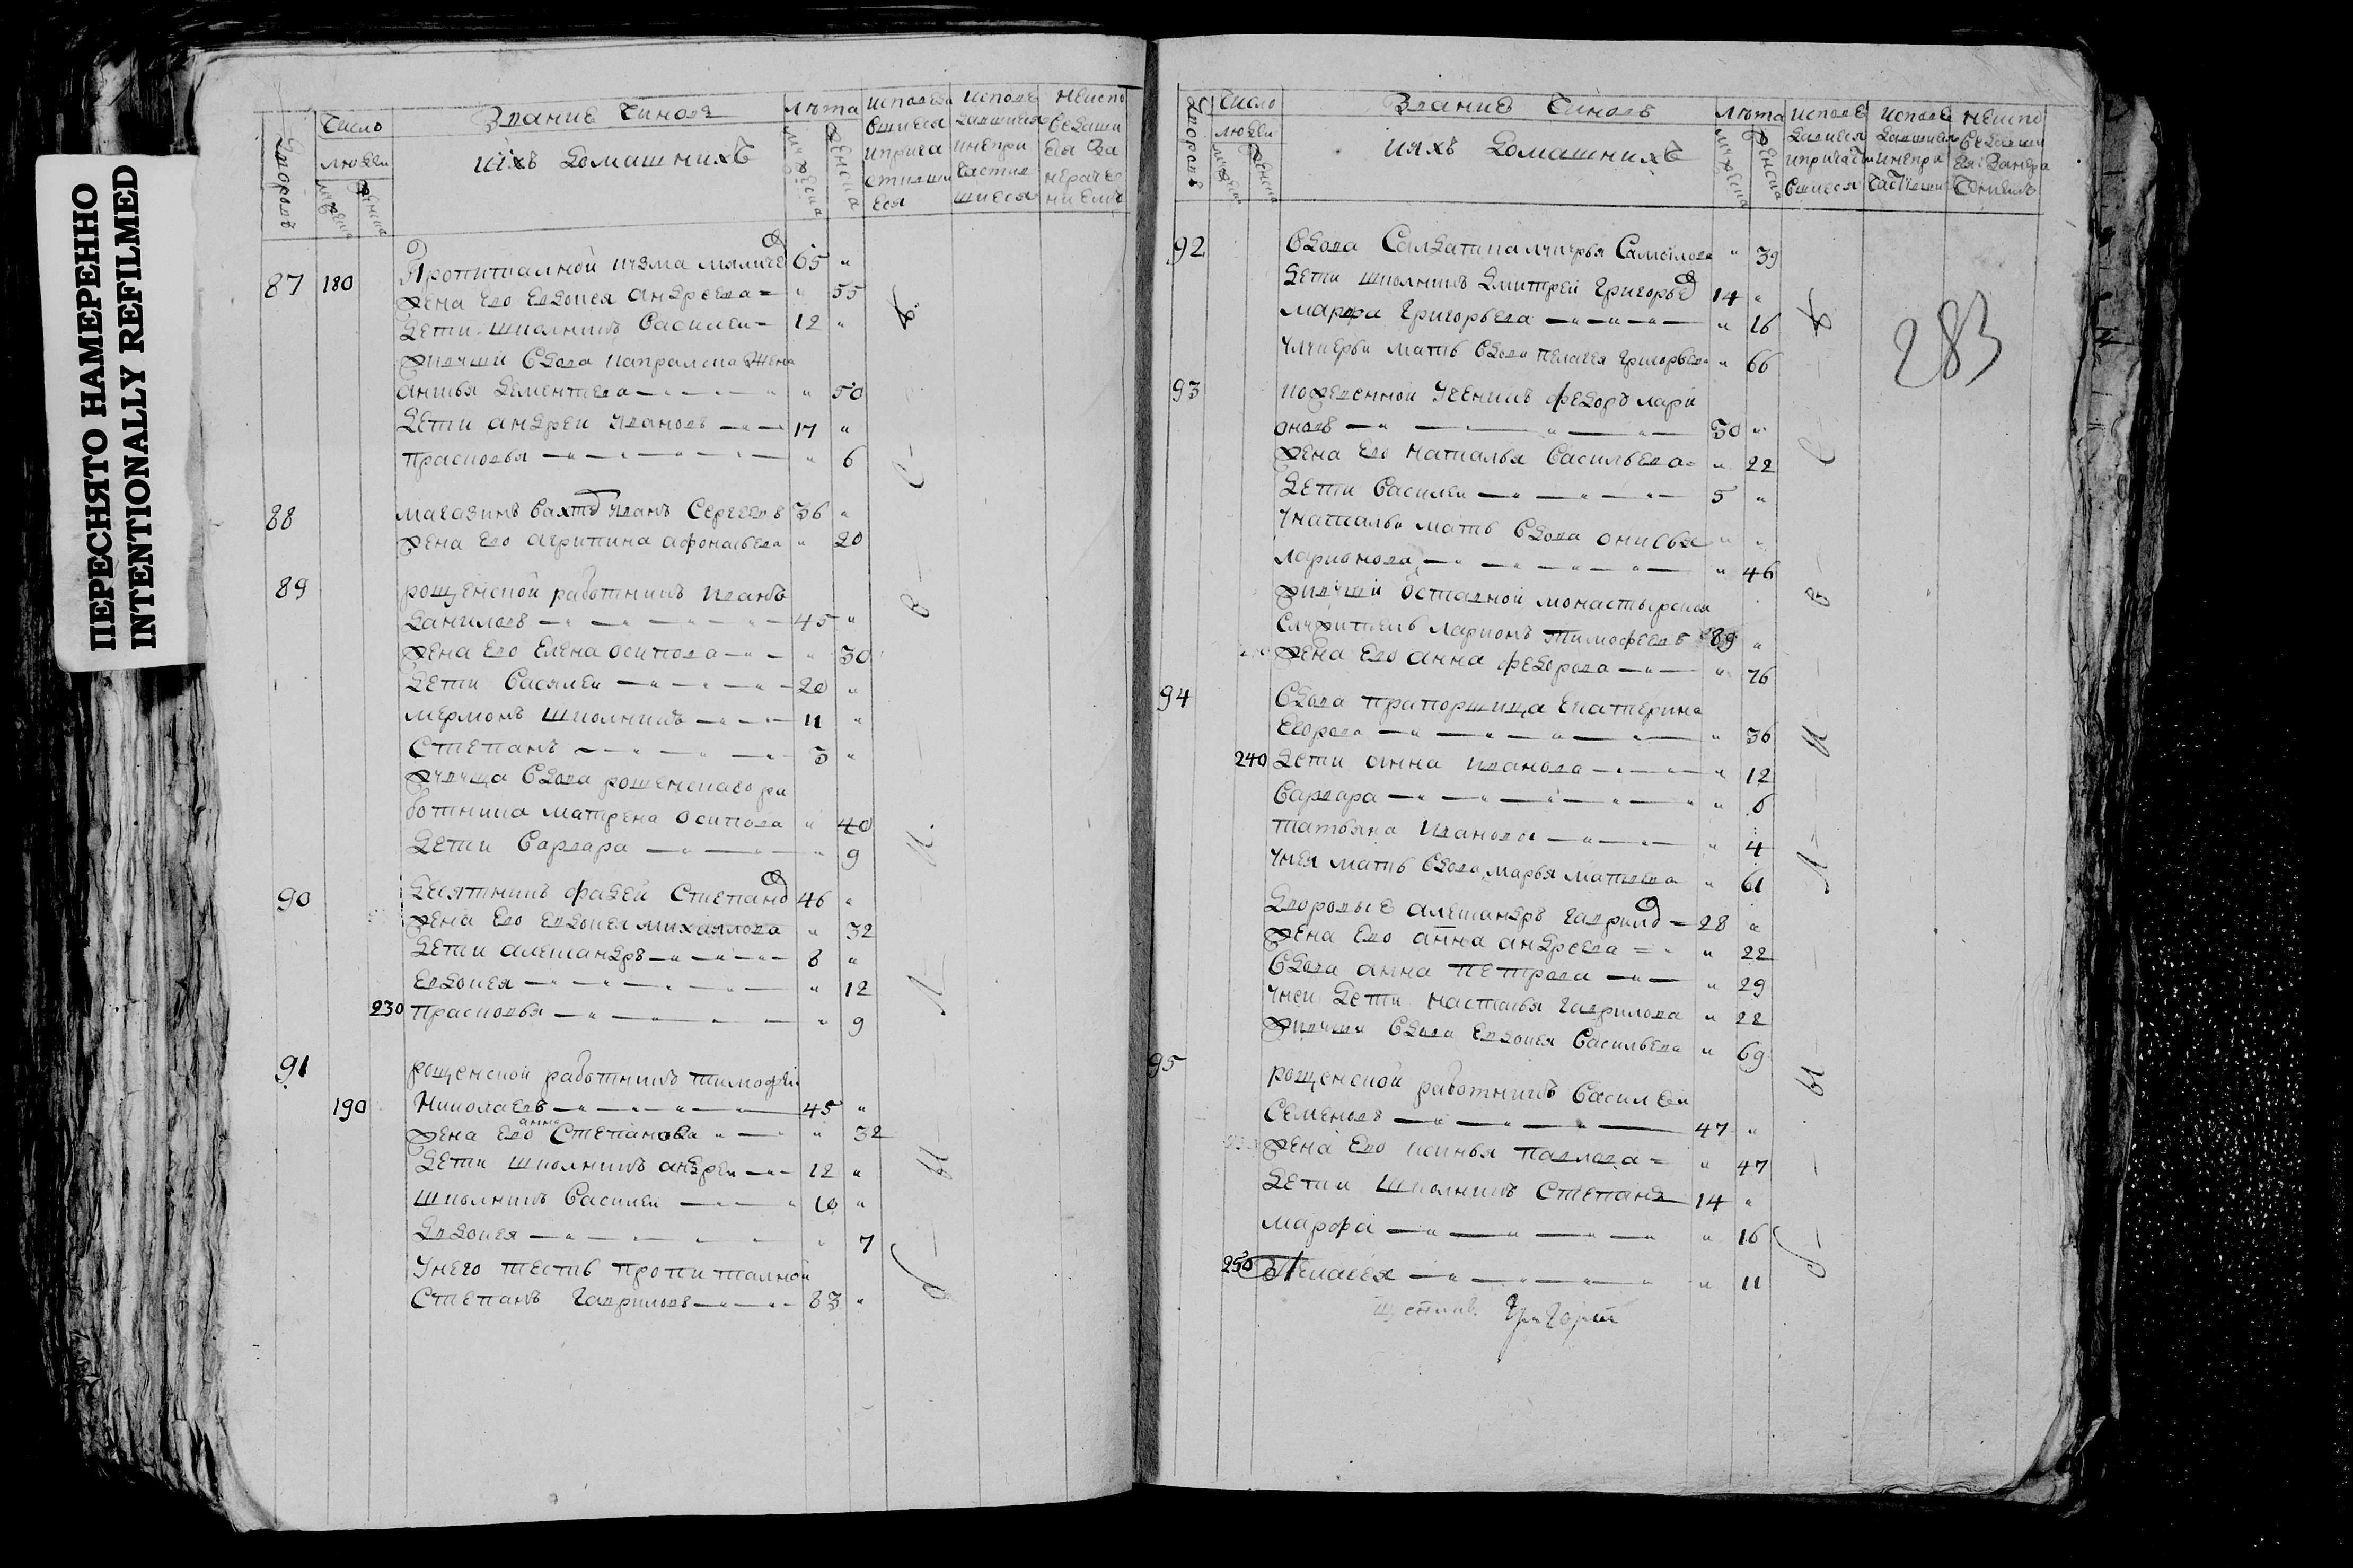 ПЕРЕСНЯТО НАМЕРЕННО
INTENTIONALLY REFILMED
дворовъ
Число
людеи
мужеска
женска
Звание чиновъ
ихъ домашнихъ
Лѣта
мужеска
женска
исповеда
вшиеся
и прича
стивши
еся
исповѣ
давшиеся
и непри
частив
шиеся
неиспо
ведавши
еся за
нераче
ниемъ
87 180 Пропиталной 65 "
жена ево Евдокея андреева " 55
дети школникъ Василеи 12 "
живущей вдова капралска жена
анисья дементьева " 50
дети андреи Ивановъ 17 "
Прасковья " 6
88 магазинъ вахтеръ Иванъ Сергеевъ 36 "
жена ево агрипина афонасьева " 20
89 рощенской работникъ Иванъ
Даниловъ 45 "
жена ево Елена осипова " 30
дети Василеи 20 "
школникъ 11 "
Степанъ 3 "
живуща вдова рощенскаго ра
ботника матрена осипова " 40
дети Варвара " 9
90 десятникъ фадеи Степановъ 46 "
жена ево Евдокея михаилова " 32
дети александръ 8 "
Евдокея " 12
230 Прасковья " 9
91 рощенской работникъ тимофеи
190 Николаевъ 45 "
анна
жена ево Степанова " 32
дети школникъ андреи 12 "
школникъ Василеи 10 "
Евдокея " 7
У него тесть пропиталной
Степанъ Гавриловъ 83 "
дворовъ
Число
людеи
мужеска
женска
Звание чиновъ
ихъ домашнихъ
Лѣта
мужеска
женска
исповѣ
давшиеся
и причасти
вшиеся
исповѣ
давшиеся
и непри
частивши
неиспо
ведавши
еся за нера
чениемъ
283
92 Вдова Салдатка лукерья Самоилова " 39
дети школникъ дмитреи Григорьевъ 14 "
марфа Григорьева " 16
У лукерьи мать вдова пелагея Григорьева " 66
93 ученикъ федоръ лари
оновъ 30 "
жена ево наталья Васильева " 22
дети Василеи 5 "
У натальи мать вдова онисья " "
ларионова " 46
живущей отставной монастырской
служитель ларионъ тимофеевъ 89 "
жена ево анна федорова " 76
94 Вдова прапорщица Екатерина
Егорова " 36
240 дети анна Иванова " 12
Варвара " 6
татьяна Иванова " 4
У нея мать вдова марья матвеева " 61
дворовые александръ Гавриловъ 28 "
жена ево анна андреева " 22
Вдова анна петрова " 29
У неи дети настасья Гаврилова " 22
живущая вдова Евдокея Васильева " 69
95 рощенской работникъ Василеи
Семеновъ 47 "
жена ево ксинья павлова " 47
дети школникъ Степанъ 14 "
марфа " 16
250 Пелагея " 11
Григорій